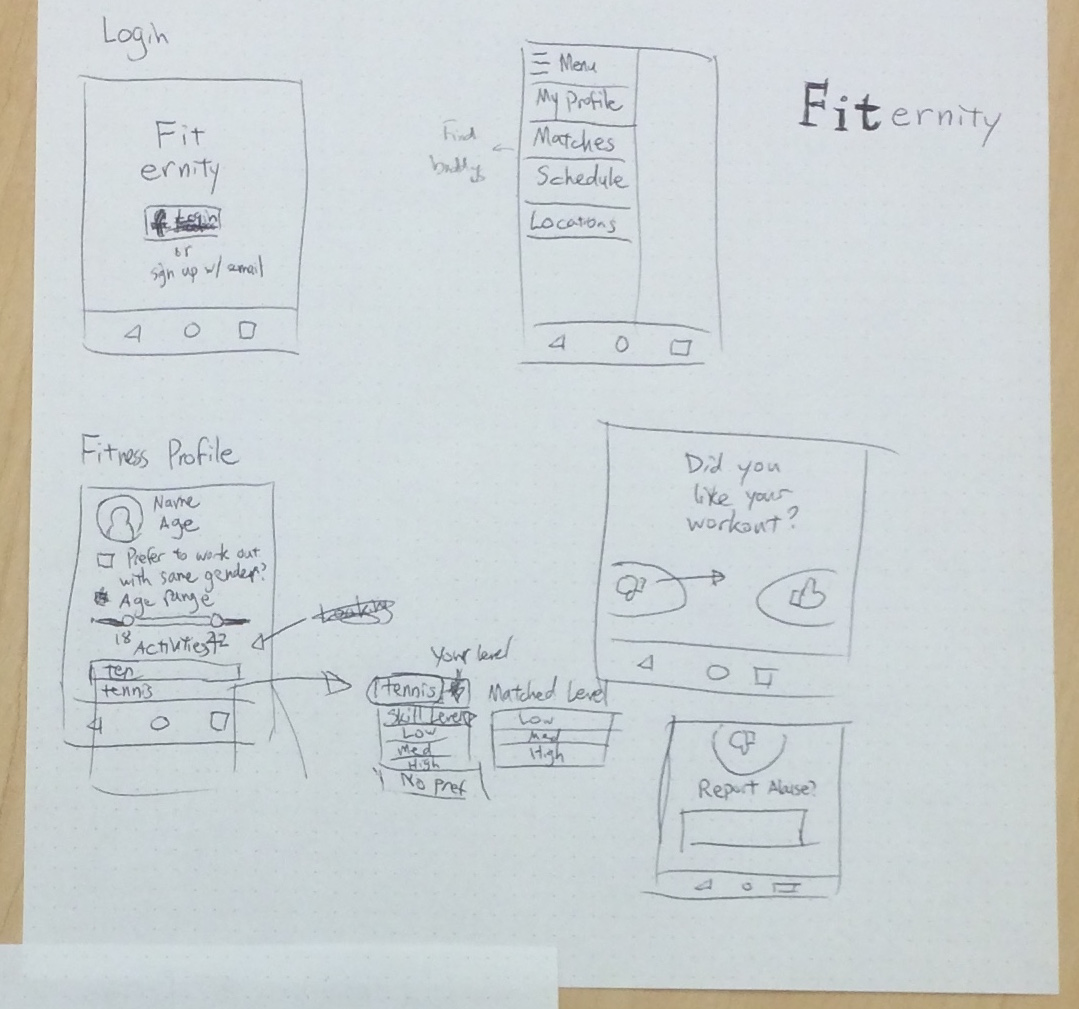 Login
Fit
ernity
f Login
or
sign up w/ email
Menu
My Profile
Matches
Schedule
Locations
Find
buddys
Fiternity
Fitness Profile
Name
Age
Prefer to work out
with same gender?
Age range
18
42
Activities
ten
tennis
Looking
Your level
tennis
Skill Level
Low
Med
High
No Pref
Matched Level
Low
Med
High
Did you
like your
workout?
Report Abuse?